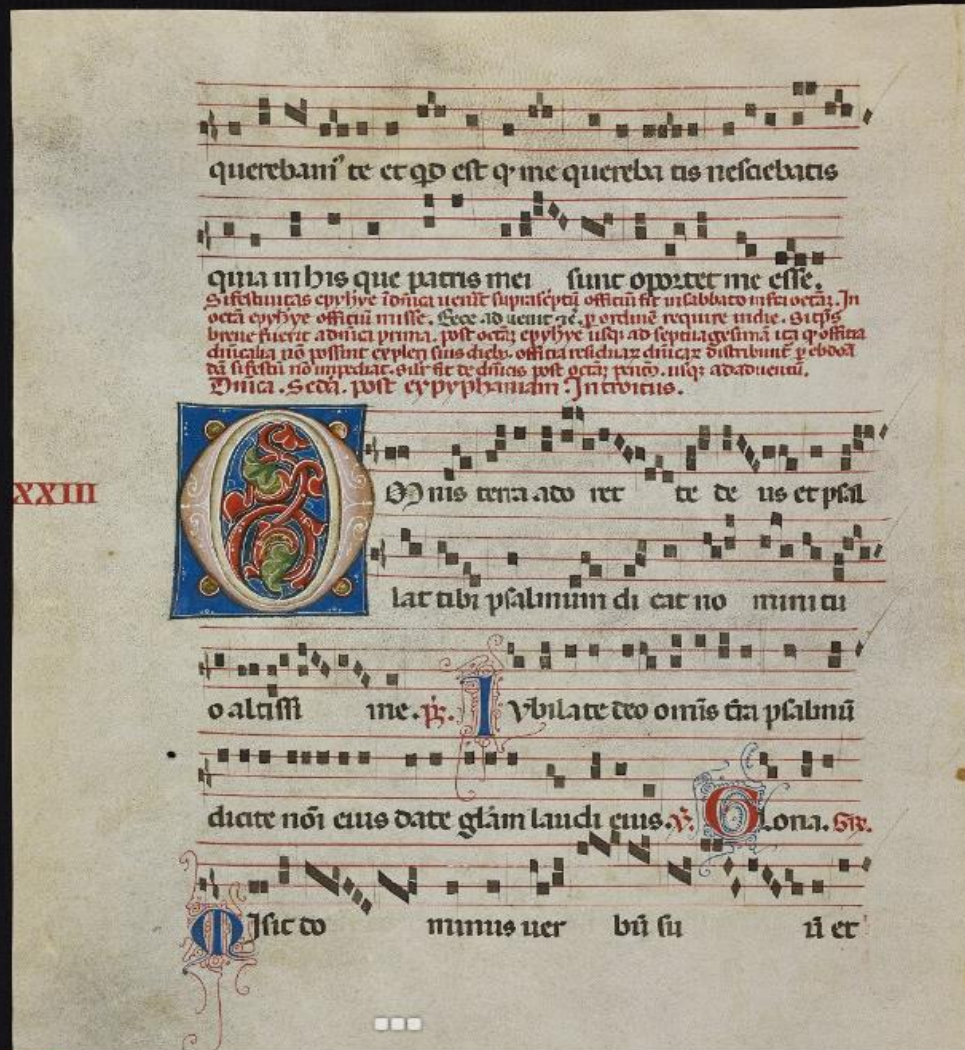 querebant᷒ te et qd est qr me quereba tis nesciebatis
quia in his que patris mei sunt oportet me esse.
Si festiuitas epyhye ī dn̄ica uen̄it officiū fit in sabbato octaɜ. In
octā epyhye officiū misse. Ecce aduenit ꝛc̄. ꝑ ordinē require in die. Si
breue fuerit a dn̄ica prima. post octaɜ epyhye usqɜ ad septuagesimā ita ꝙ officia
dn̄icalia nō possint expleri suis diebɜ. officia residuaɜ dn̄icaɜ ꝑ ebdoā
dā si festū nō impediat. sil̄r fit de dn̄icis post octaɜ usqɜ ad aduentū.
Dn̄ica. Scd̄a. post epyphaniam. Introitus.
XXIII
OMnis terra ado ret te de us et psal
lat tibi psalmum di cat no mini tu
o altissi me. p̄s. IVbilate deo om̄is t̄ra psalmū
dicite nōi eius date gl̄am laudi eius. V. Gloria. Gr̄.
MIsit do minus uer bū su ū et